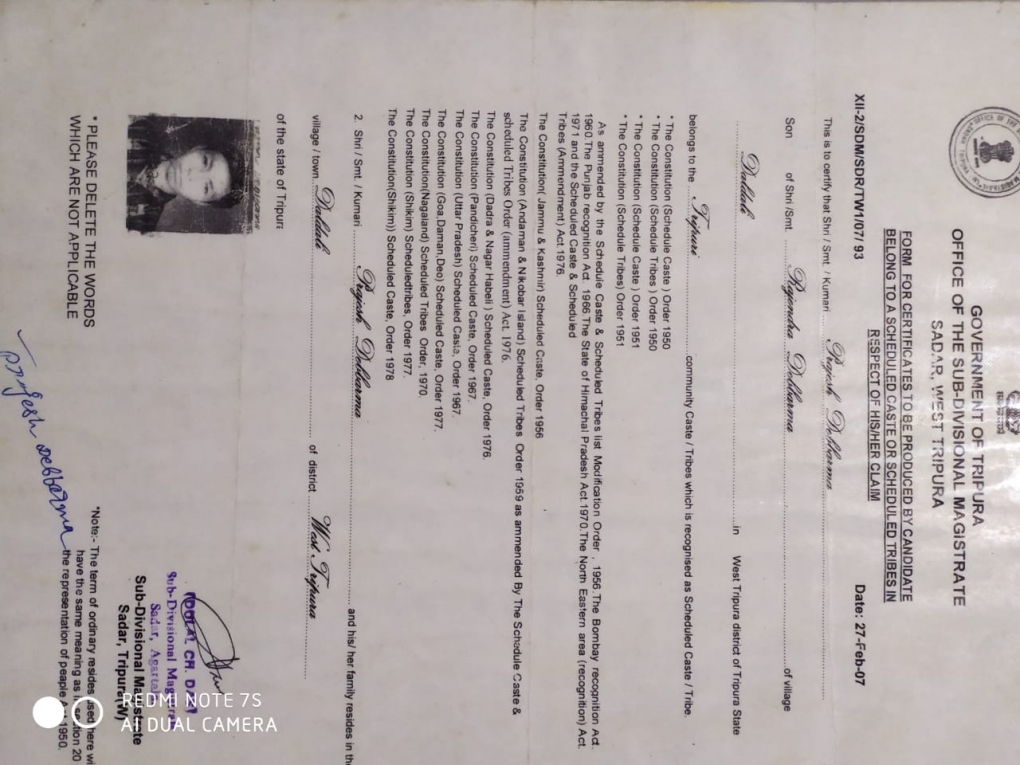 GOVERNMENT OF TRIPURA
OFFICE OF THE SUB-DIVISIONAL MAGISTRATE
SADAR, WEST TRIPURA
FORM FOR CERTIFICATES TO BE PRODUCED BY CANDIDATE
BELONG TO A SCHEDULED CASTE OR SCHEDULED TRIBES IN
RESPECT OF HIS/HER CLAIM
XII-2/SDM/SDR/TW1/07/ 93 Date: 27-Feb-07
This is to certify that Shri / Smt. / Kumari Rajesh Debbarma
Son of Shri /Smt. Rajendra Debbarma of village
Duldali in West Tripura district of Tripura State
belongs to the Tripuri community Caste / Tribes which is recognised as Scheduled Caste / Tribe.
* The Constitution (Schedule Caste ) Order 1950
* The Constitution (Schedule Tribes ) Order 1950
* The Constitution (Schedule Caste ) Order 1951
* The Constitution (Schedule Tribes) Order 1951
As ammended by the Schedule Caste & Scheduled Tribes list Modification Order , 1956.The Bombay recognition Act.
1960.The Punjab recognition Act. 1966.The State of Himachal Pradesh Act.1970.The North Eastern area (recognition) Act.
1971 and the Scheduled Caste & Scheduled
Tribes (Ammendment) Act 1976.
The Constitution( Jammu & Kashmir) Scheduled Caste, Order 1956
The Constitution (Andaman & Nikobar Island) Scheduled Tribes Order 1959 as ammended By The Schedule Caste &
scheduled Tribes Order (ammendment) Act, 1976.
The Constitution (Dadra & Nagar Habeli ) Scheduled Caste, Order 1976.
The Constitution (Pandicheri) Scheduled Caste, Order 1967.
The Constitution (Uttar Pradesh) Scheduled Caste, Order 1967.
The Constitution (Goa,Daman,Deo) Scheduled Caste, Order 1977.
The Constitution(Nagaland) Scheduled Tribes Order, 1970.
The Constitution (Shikim) Scheduledtribes, Order 1977.
The Constitution(Shikim)) Scheduled Caste, Order 1978
2. Shri / Smt. / Kumari Rajesh Debbarma and his/ her family resides in the
village / town. Duldali of district West Tripura
of the state of Tripuri
Sub-Divisional
Sadar,
Sub-Divisional Magistrate
Sadar, Tripura(W)
* PLEASE DELETE THE WORDS
WHICH ARE NOT APPLICABLE
Rajesh Debbarma
*Note:- The term of ordinary resides used here wi
have the same meaning as
the representation of peaple 1950.
REDMI NOTE 7S
AI DUAL CAMERA